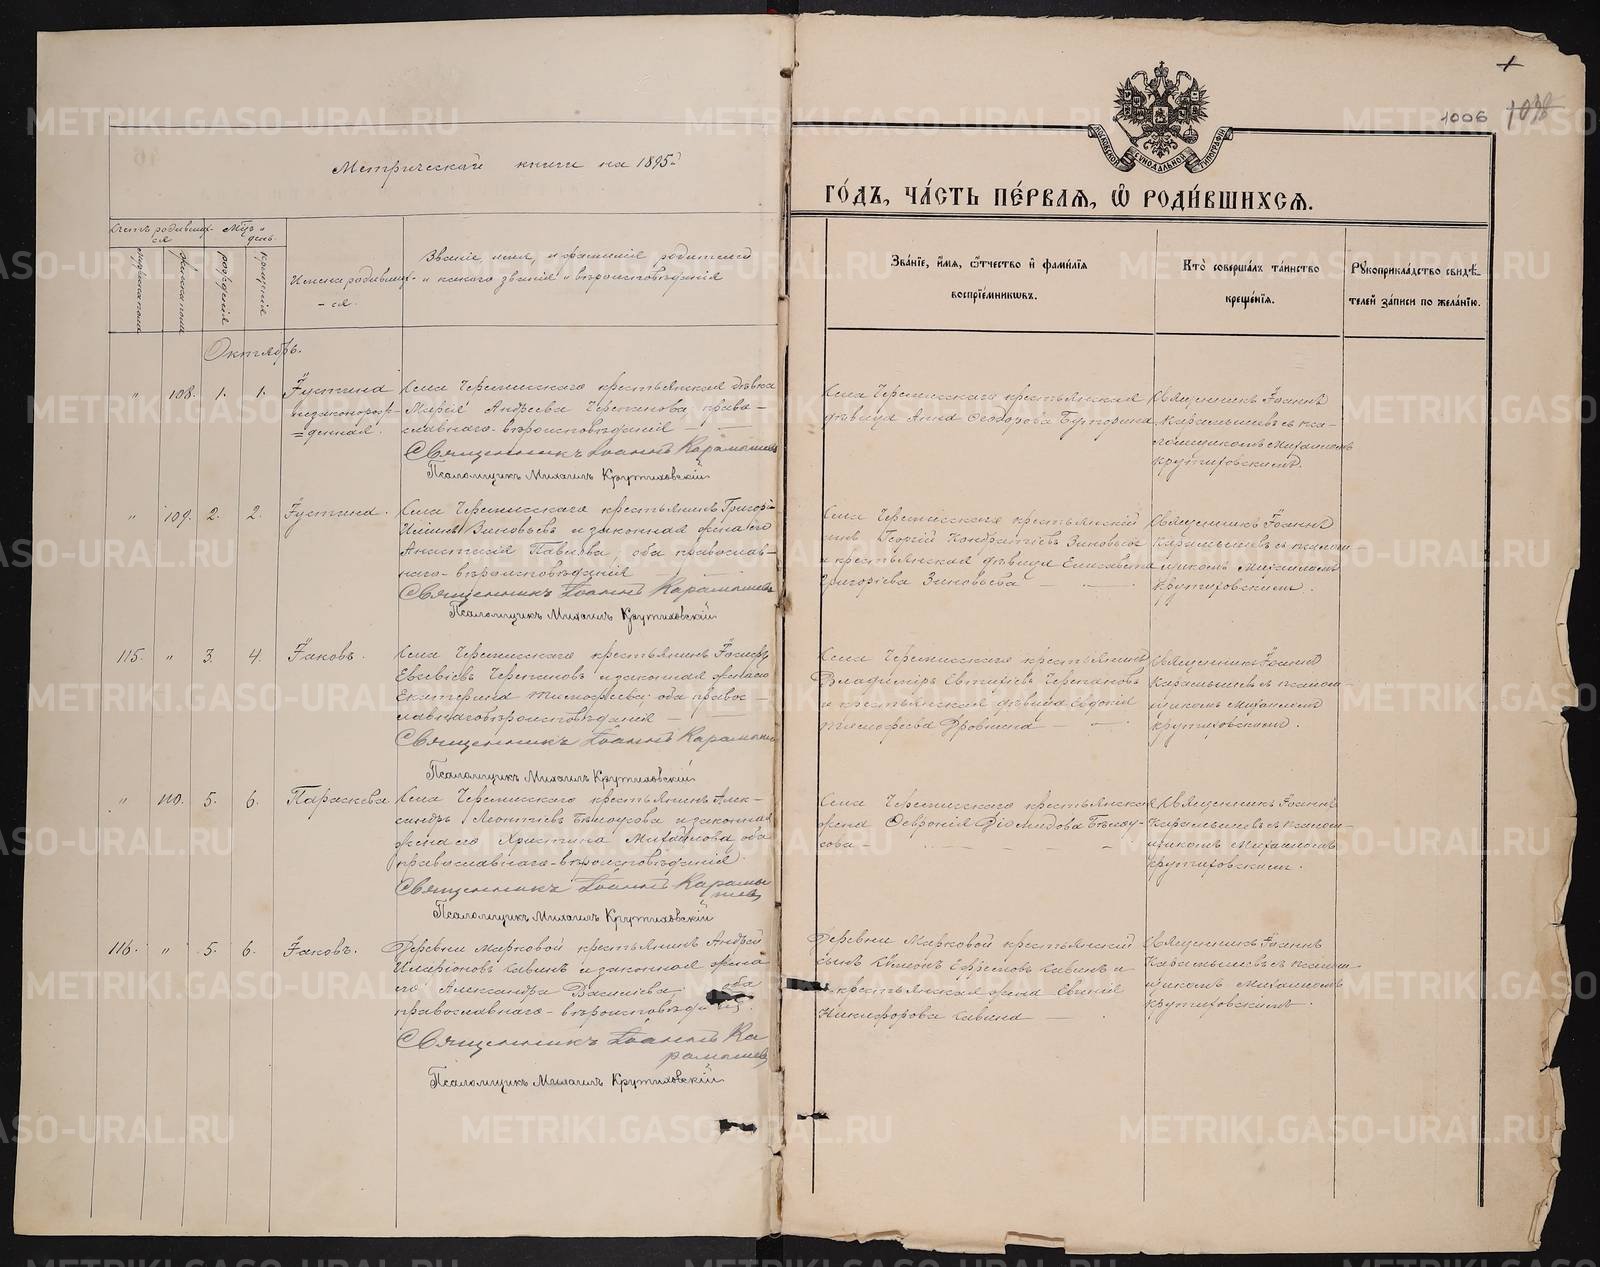 Метрической книги на 1895й
Счетъ родивших-
ся
Мѣц. и
день.
мужеска пола
женска пола
рожденія
крещенія
Имена родивших-
-ся.
Званіе, имя, и фамилія родителей
и какого званія и вѣроисповѣданія
Октябрь.
" 108. 1. 1. Іустина
незаконорож-
=денная.
Села Черемисскаго крестьянская дѣвка
Марія Андреева Черепанова, право-
славнаго-вѣроисповѣданія
Священникъ Іоаннъ Карамышев
Псаломщикъ Михаилъ Крутиховскій
" 109. 2. 2. Іустина.
Села Черемисскаго крестьянинъ Григорі
Зиновьевъ и законная жена его
Анастасія Павлова, оба православ-
наго-вѣроисповѣданія
Священникъ Іоаннъ Карамышев
Псаломщикъ Михаилъ Крутиховскій
115. " 3. 4. Іаковъ.
Села Черемисскаго крестьянинъ Іосифъ
Евсевіевъ Черепановъ и законная жена его
Екатерина Тимофеева, оба правос-
лавнаго вѣроисповѣданія
Священникъ Іоаннъ Карамышев
Псаломщикъ Михаилъ Крутиховскій
" 110. 5. 6. Параскева
Села Черемисскаго крестьянинъ Алек-
сандръ Леонтіевъ Бѣлоусовъ и законная
жена его Христина Михайлова, оба
православнаго-вѣроисповѣданія.
Священникъ Іоаннъ Карамы
шев
Псаломщикъ Михаилъ Крутиховскій
116. " 5. 6. Іаковъ.
Деревни Марковой крестьянинъ Андрей
Иларіоновъ Савинъ и законная жена
его Александра Васильева, оба
православнаго-вѣроисповѣданія.
Священникъ Іоаннъ Ка
рамышев
Псаломщикъ Михаилъ Крутиховскій
1006
МОСКОВСКОЙ СѴНОДАЛЬНОЙ ТИПОГРАФІИ
ГО́ДЪ, ЧА́СТЬ ПЕ́РВАѦ, Ѽ РОДИ́ВШИХСѦ.
Зва́нїе, и҆́мѧ, ѻ҆́тчество и҆ фами́лїѧ
воспрїе́мниковъ.
Кто̀ соверша́лъ та́инство
креще́нїѧ.
Рꙋкоприкла́дство свидѣ́-
телей за́писи по жела́нїю.
Села Черемисскаго крестьянская
дѣвица Анна Ѳеодорова Бузорина
Священникъ Іоаннъ
Карамышевъ съ пса-
ломщикомъ Михаиломъ
Крутиховскимъ.
Села Черемисскаго крестьянскій
сынъ Георгій Кондратіевъ Зиновьевъ
и крестьянская дѣвица Елисавета
Григоріева Зиновьева
Священникъ Іоаннъ
Карамышевъ съ псалом-
щикомъ Михаиломъ
Крутиховскимъ.
Села Черемисскаго крестьянинъ
Владимиръ Евтихіевъ Черепановъ
и крестьянская дѣвица Евдокія
Тимофеева Дровнина
Священникъ Іоаннъ
Карамышевъ съ псалом-
щикомъ Михаиломъ
Крутиховскимъ.
Села Черемисскаго крестьянская
жена Ѳевронія Діомидова Бѣлоу-
сова
Священникъ Іоаннъ
Карамышевъ съ псалом-
щикомъ Михаиломъ
Крутиховскимъ.
Деревни Марковой крестьянскій
сынъ Сѵмеонъ Ефремовъ Савинъ и
крестьянская жена Евгенія
Никифорова Савина
Священникъ Іоаннъ
Карамышевъ съ псалом-
щикомъ Михаиломъ
Крутиховскимъ.
METRIKI.GASO-URAL.RU